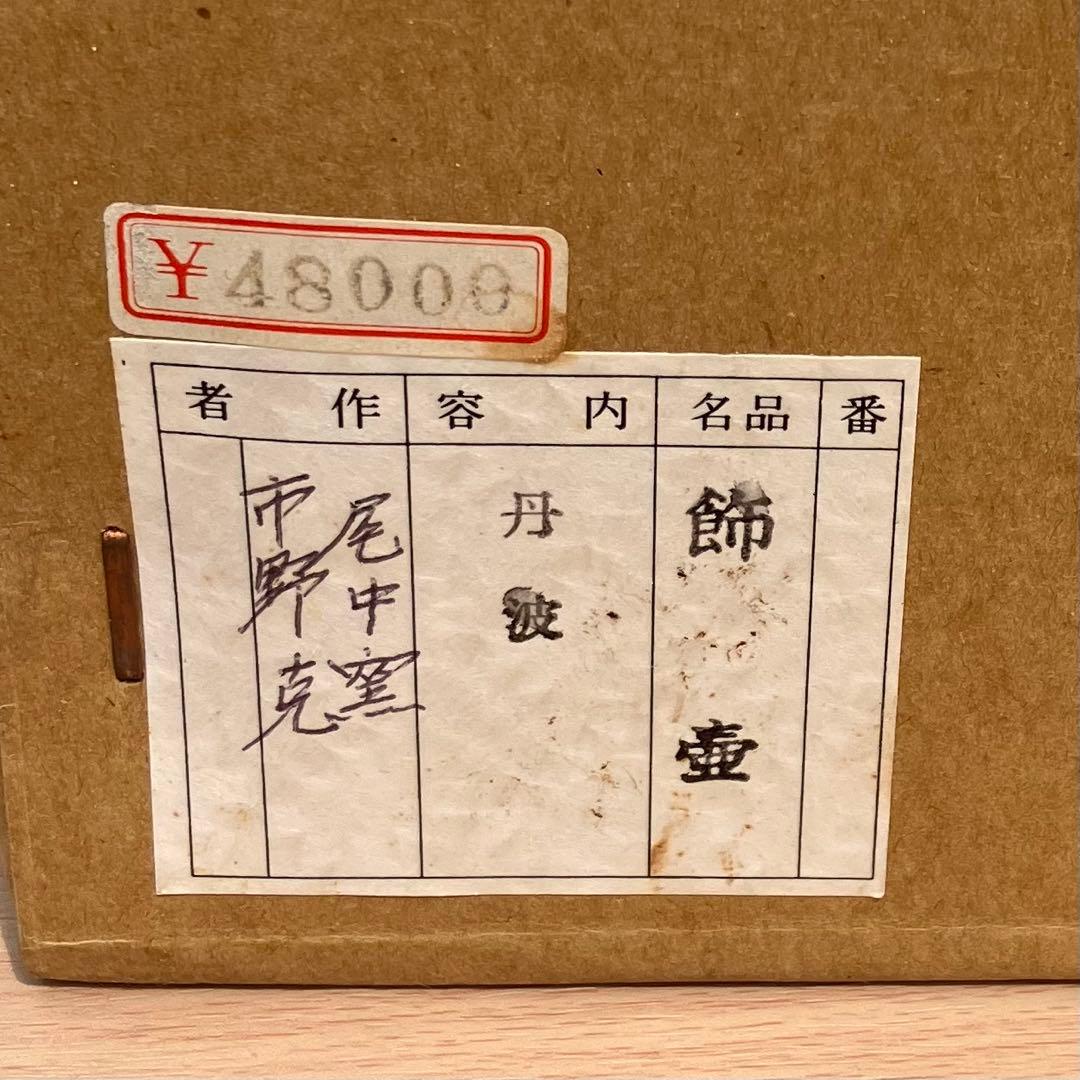 ¥48000
番
品名
内容
作者
飾壷
丹波
尾中窯
市野克